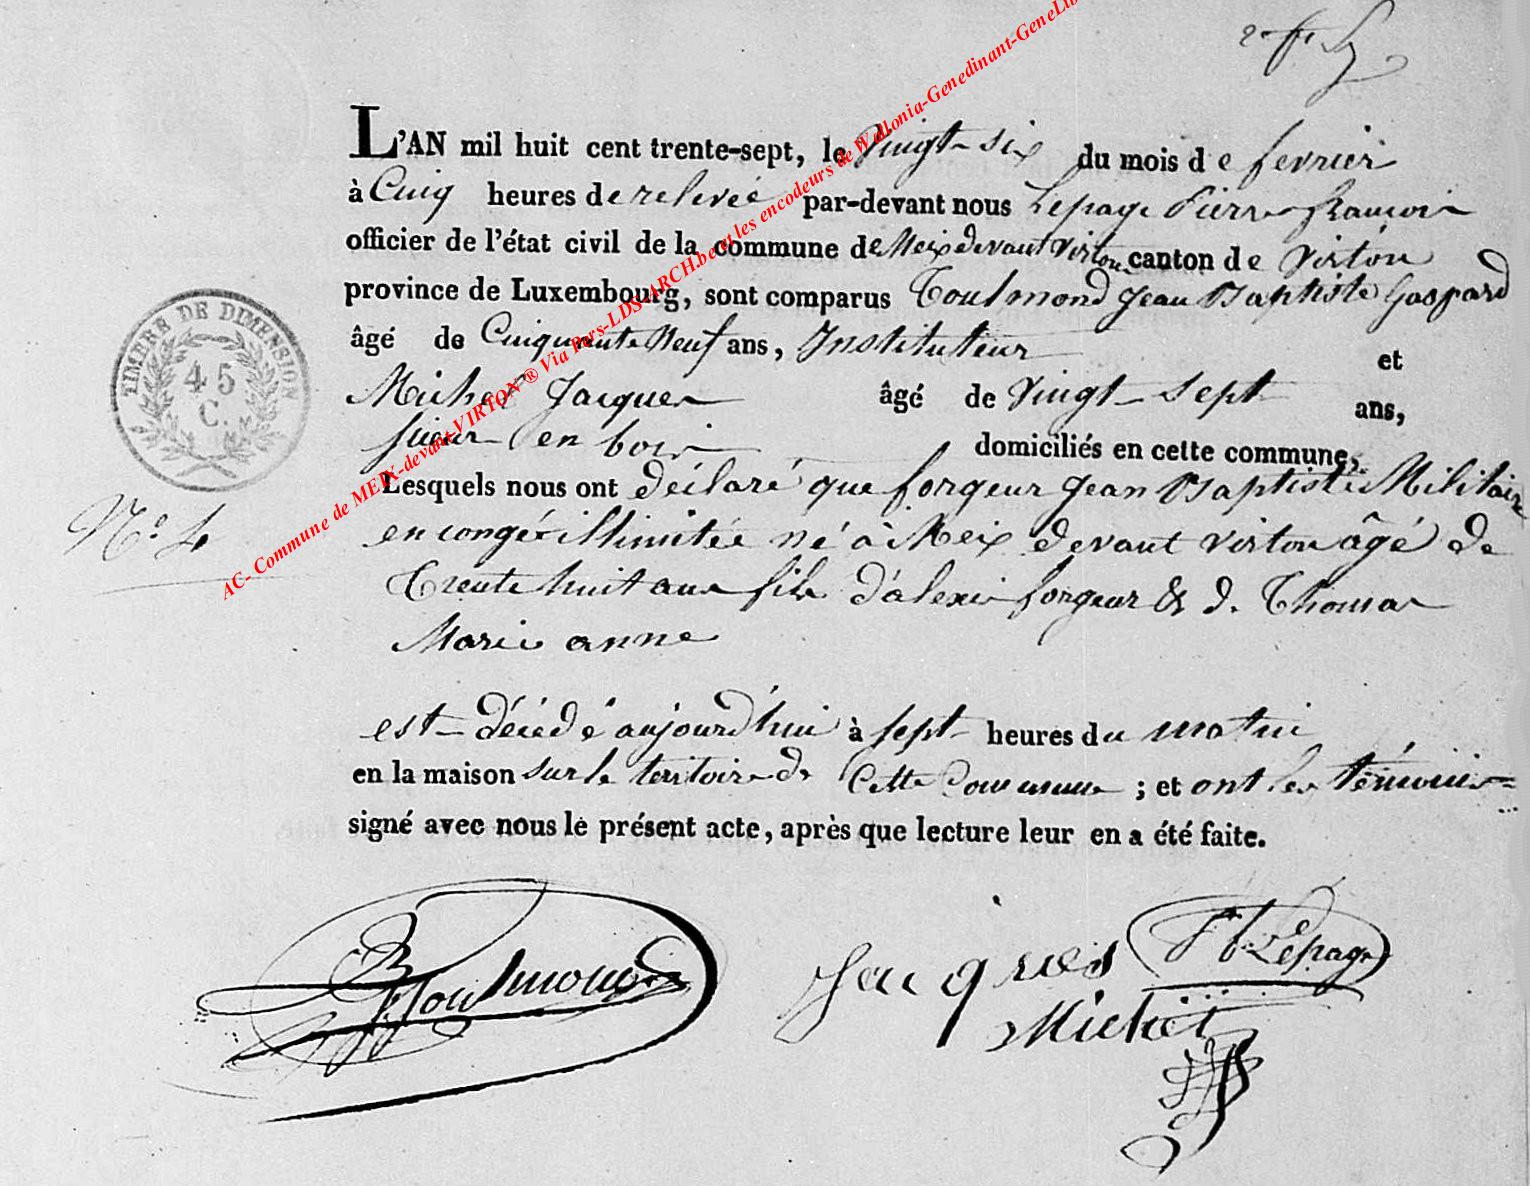 L'AN mil huit cent trente-sept, le Vingt-six du mois de fevrier
à Cinq heures de relevée par-devant nous Lepage Pierre françois
officier de l'état civil de la commune de Meix devant Virton canton de Virton
province de Luxembourg, sont comparus Toulmond Jean Baptiste Gaspard
âgé de Cinquante Neuf ans, Instituteur et
Michel Jacques âgé de Vingt-sept ans,
sieur en bois domiciliés en cette commune,
Lesquels nous ont déclaré que forgeur Jean Baptiste Militaire
en congé illimitée né à Meix devant virton âgé de
Trente huit ans fils d'alexis forgeur & d. Thomas
Marie anne
est décédé aujourd'hui à sept heures du matin
en la maison sur le territoire de Cette Commune ; et ont les témoins
signé avec nous le présent acte, après que lecture leur en a été faite.
TIMBRE DE DIMENSION
45
C.
N° 4
Toulmond
Jacques
Michel
Lepage
AC- Commune de MEIX-devant-VIRTON® Via Pars-LDS-ARCH.be et les encodeurs de Wallonia-Genedinant-GeneLux